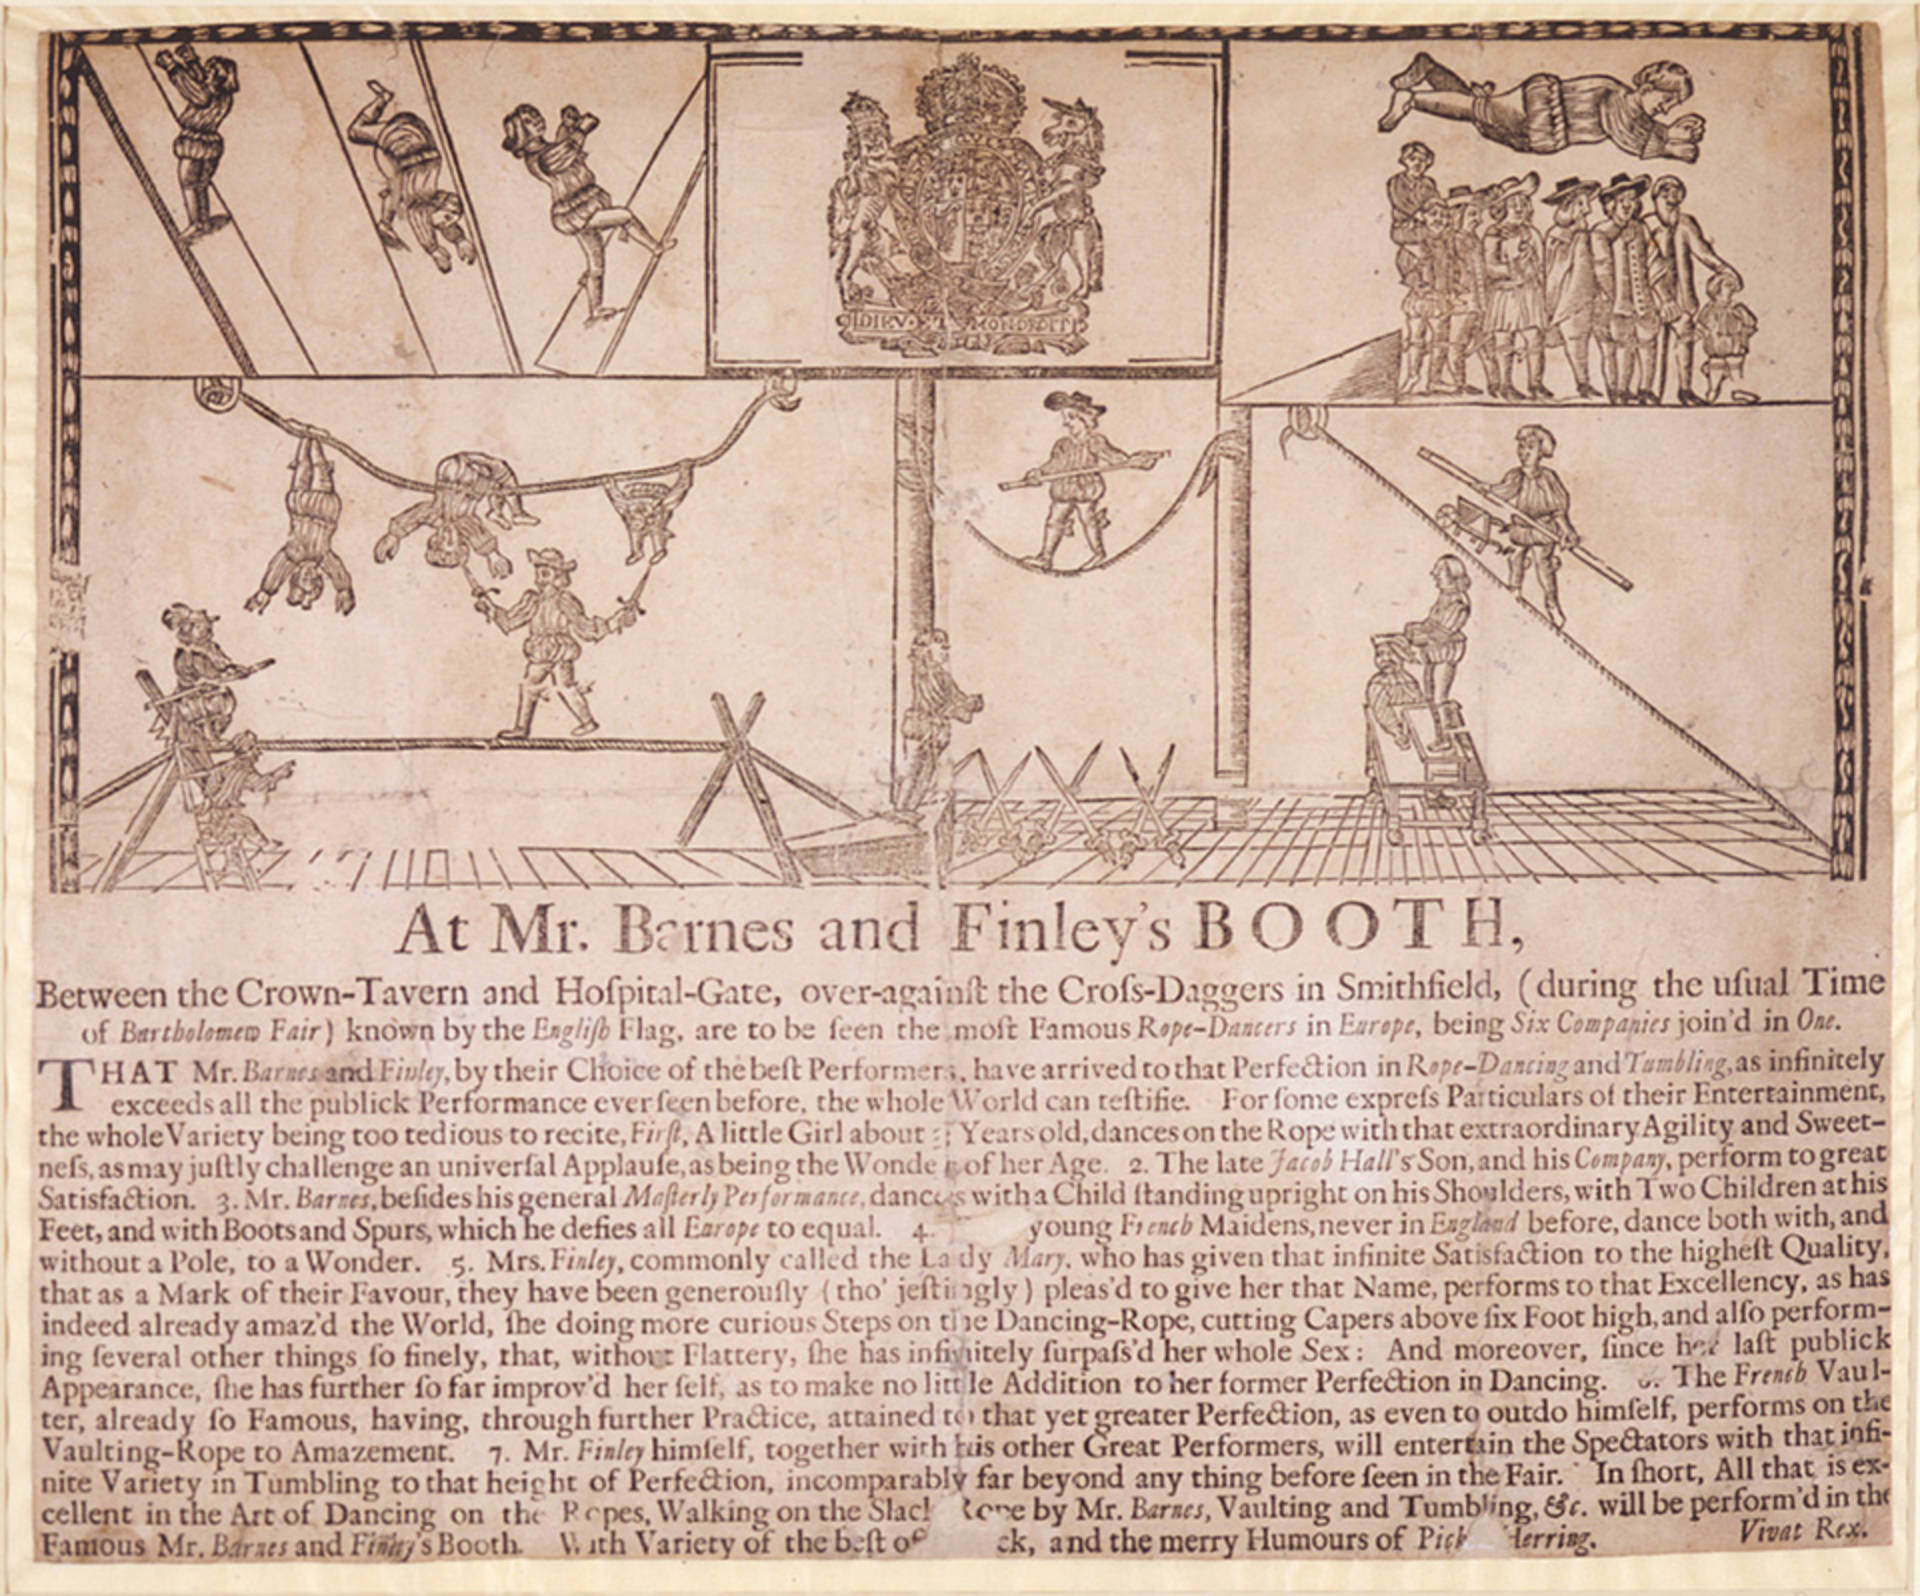 DIEV · ET MON DROIT
At Mr. Barnes and Finley's BOOTH,
Between the Crown-Tavern and Hoſpital-Gate, over-againſt the Croſs-Daggers in Smithfield, (during the uſual Time
of Bartholomew Fair) known by the Engliſh Flag, are to be ſeen the moſt Famous Rope-Dancers in Europe, being Six Companies join'd in One.
THAT Mr. Barnes and Finley, by their Choice of the beſt Performers, have arrived to that Perfection in Rope-Dancing and Tumbling, as infinitely
exceeds all the publick Performance ever ſeen before, the whole World can teſtifie. For ſome expreſs Particulars of their Entertainment,
the whole Variety being too tedious to recite, Firſt, A little Girl about Years old, dances on the Rope with that extraordinary Agility and Sweet-
neſs, as may juſtly challenge an univerſal Applauſe, as being the Wonder of her Age. 2. The late Jacob Hall's Son, and his Company, perform to great
Satisfaction. 3. Mr. Barnes, beſides his general Maſterly Performance, dances with a Child ſtanding upright on his Shoulders, with Two Children at his
Feet, and with Boots and Spurs, which he defies all Europe to equal. 4. young French Maidens, never in England before, dance both with, and
without a Pole, to a Wonder. 5. Mrs. Finley, commonly called the Lady Mary, who has given that infinite Satisfaction to the higheſt Quality,
that as a Mark of their Favour, they have been generouſly (tho' jeſtingly) pleas'd to give her that Name, performs to that Excellency, as has
indeed already amaz'd the World, ſhe doing more curious Steps on the Dancing-Rope, cutting Capers above ſix Foot high, and alſo perform-
ing ſeveral other things ſo finely, that, without Flattery, ſhe has infinitely ſurpaſs'd her whole Sex: And moreover, ſince her laſt publick
Appearance, ſhe has further ſo far improv'd her ſelf, as to make no little Addition to her former Perfection in Dancing. 6. The French Vaul-
ter, already ſo Famous, having, through further Practice, attained to that yet greater Perfection, as even to outdo himſelf, performs on the
Vaulting-Rope to Amazement. 7. Mr. Finley himſelf, together with his other Great Performers, will entertain the Spectators with that infi-
nite Variety in Tumbling to that height of Perfection, incomparably far beyond any thing before ſeen in the Fair. In ſhort, All that is ex-
cellent in the Art of Dancing on the Ropes, Walking on the Slack Rope by Mr. Barnes, Vaulting and Tumbling, &c. will be perform'd in the
Famous Mr. Barnes and Finley's Booth. With Variety of the beſt and the merry Humours of Herring. Vivat Rex.